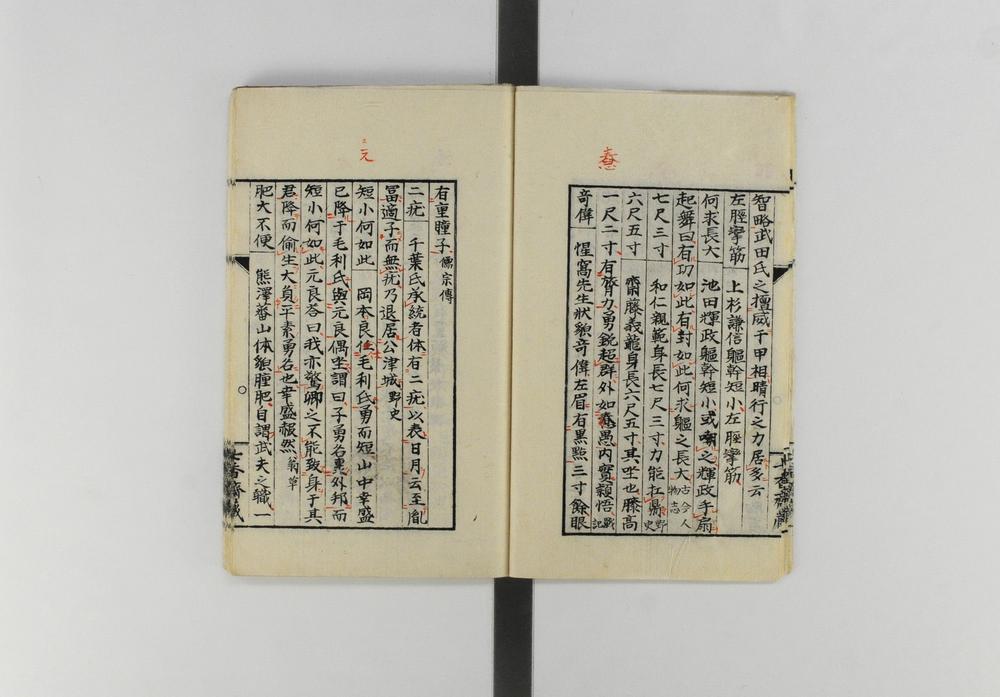 惷
智略武田氏之擅威千甲相晴行之力居多云
左脛攣筋　上杉謙信軀幹短小左脛攣筋
何求長大　池田輝政軀幹短小或嘲之輝政手扇
起舞曰有功如此有封如此何求軀之長大古今人物志
七尺三寸　和仁親範身長七尺三寸力能扛鼎野史
六尺五寸　齋藤義龍身長六尺五寸其坐也膝高
一尺二寸有膂力勇銳超群外如惷愚内實穎悟戰記
奇偉　惺窩先生狀貌奇偉左眉有黑點三寸餘眼
元
有重瞳子儒宗傳
二疣　千葉氏承統者体有二疣以表日月云至胤
冨適子而無疣乃退居公津城野史
短小何如此　岡本良任毛利氏勇而短山中幸盛
已降于毛利氏與元良偶坐謂曰子勇名異外邦而
短小何如此元良答曰我亦驚卿之不能致身于其
君降而偷生大負平素勇名也幸盛赧然翁草
肥大不便　熊澤蕃山体貌膧肥自謂武夫之職一
七香齋藏